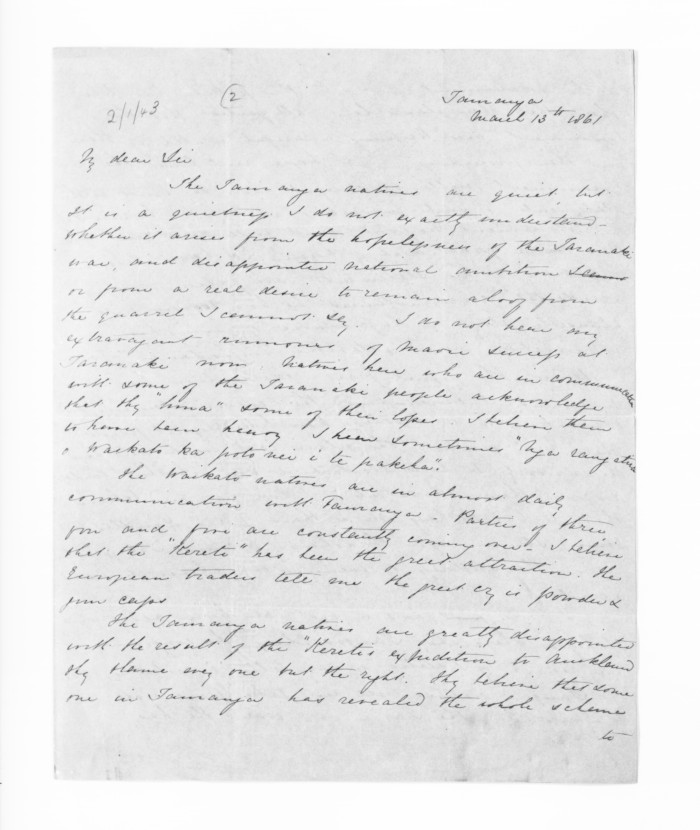 2/1/43
(2
Tauranga
March 13th 1861
My dear Sir
The Tauranga natives are quiet, but
it is a quietness I do not exactly understand -
whether it arises from the hopelessness of the Taranaki
war, and disappointed national ambition
or from a real desire to remain aloof from
the quarrel I cannot say. I do not hear any
extravagant rumours of Maori success at
Taranaki now. Natives here who are in communication
with some of the Taranaki people acknowledge
that they "huna" some of their losses. I believe them
to have been heavy I hear sometimes "Nga rangatira
o Waikato ka poto nei i te pakeha".
The Waikato natives are in almost daily
communication with Tauranga - Parties of three
four and five are constantly coming over - I believe
that the "Kerete" has been the great attraction. The
European traders tell me the great cry is powder &
gun caps
The Tauranga natives are greatly disappointed
with the result of the "Keretes expedition to Auckland
they blame every one but the right. They believe that some
one in Tauranga has revealed the whole scheme
to